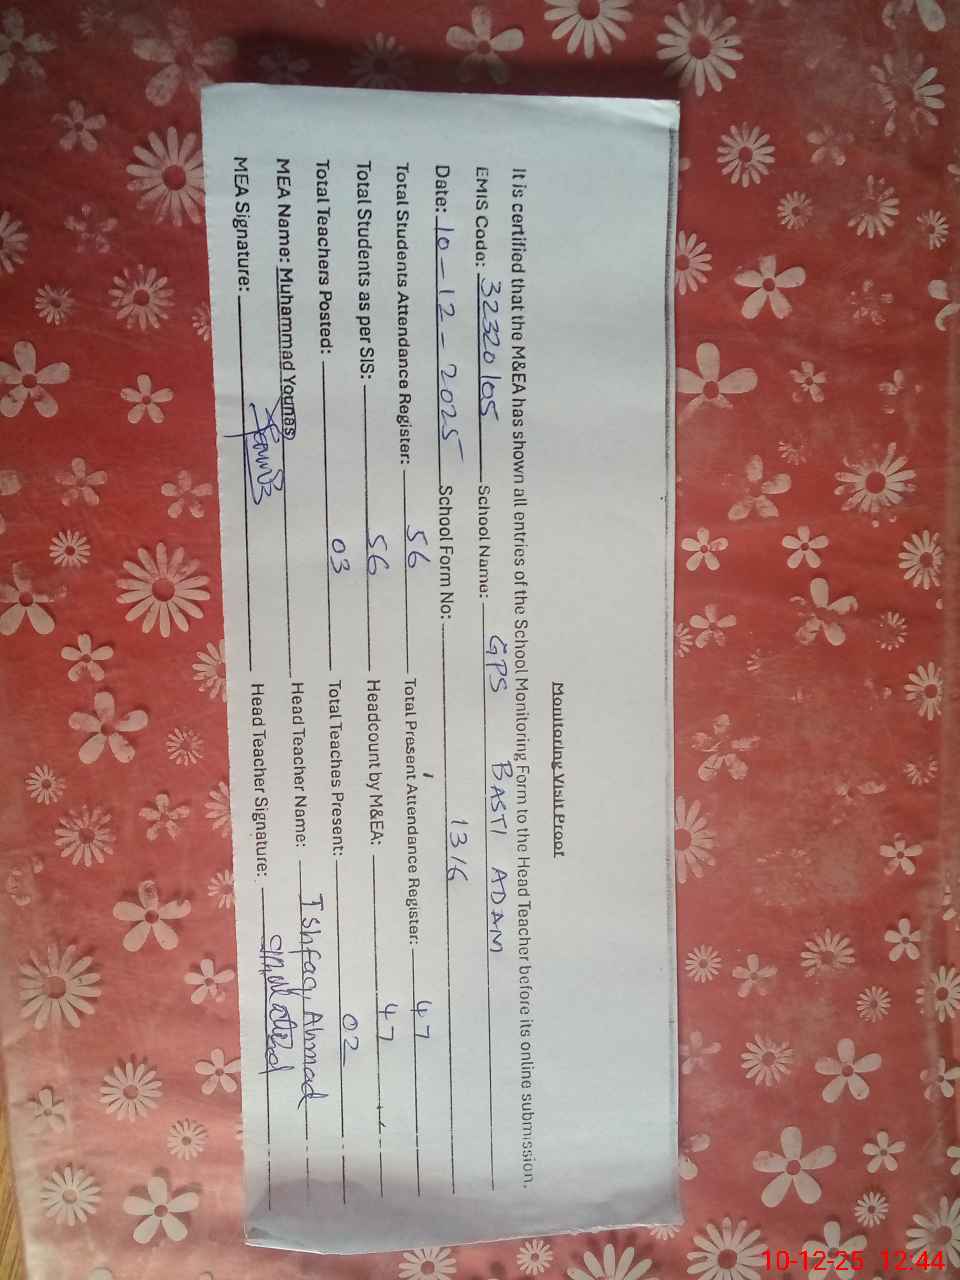 Monitoring Visit Proof
It is certified that the M&EA has shown all entries of the School Monitoring Form to the Head Teacher before its online submission.
EMIS Code: 32320105 School Name: GPS BASTI ADAM
Date: 10-12-2025 School Form No: 1316
Total Students Attendance Register: 56 Total Present Attendance Register: 47
Total Students as per SIS: 56 Headcount by M&EA: 47
Total Teachers Posted: 03 Total Teaches Present: 02
MEA Name: Muhammad Younas Head Teacher Name: Ishfaq Ahmad
MEA Signature: Head Teacher Signature:
10-12-25 12:44